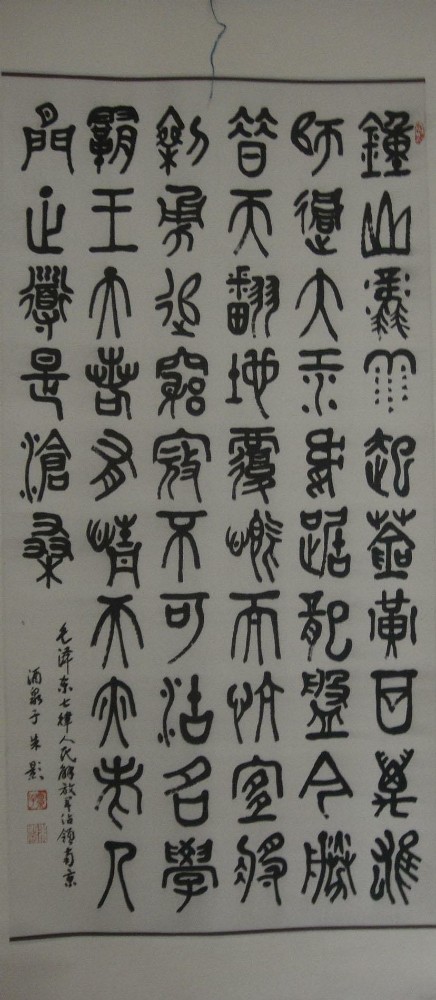 鐘山風雨起蒼黃百萬雄
師過大江虎踞龍盤今勝
昔天翻地覆慨而慷宜將
剩勇追窮寇不可沽名學
霸王天若有情天亦老人
間正道是滄桑
毛泽东七律人民解放军占领南京
酒泉于朱影